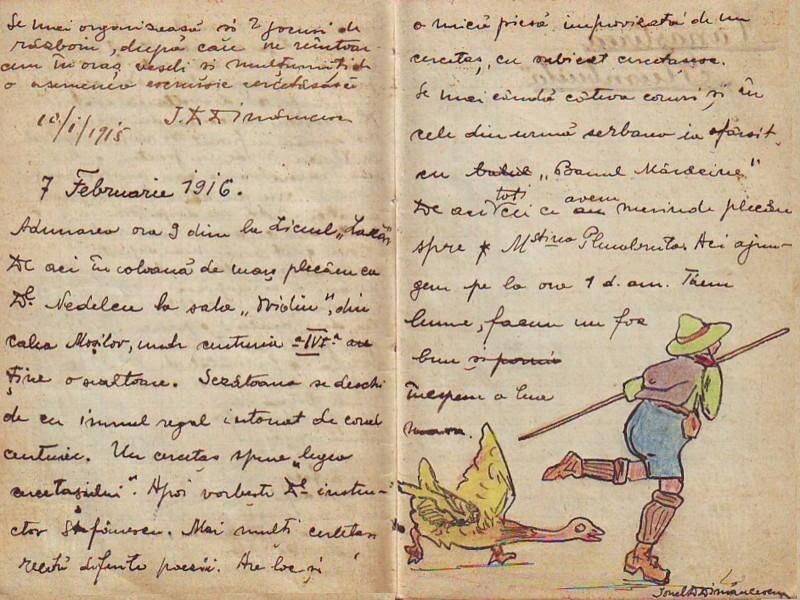 Se mai organisează și 2 jocuri de
războiu, după care ne reîntoar-
cem în oraș veseli și mulțumiți de
o asemenea excursie cercetășască
10/I/1915 I. D. Dimăncescu
7 Februarie 1916.
Adunarea ora 9 dim la Liceul „Lazăr"
De aci în coloană de marș plecăm cu
Dl. Nedelcu la sala „Tridlin", din
calea Moșilor, unde centuria a IVa
ține o șezătoare. Sezătoarea se deschi
de cu imnul regal intonat de corul
centuriei. Un cercetaș spune „legea
cercetașului". Apoi vorbește Dl instru-
ctor Ștefănescu. Mai mulți cercetași
recită diferite poesii. Are loc și
o mică piesă improvizată de un
cercetaș, cu subiect cercetășesc.
Se mai cântă câteva coruri și în
cele din urmă serbarea ia sfârșit
cu balul „Banul Mărăcine"
De aci toți cei ce avem merinde plecăm
spre Mstirea Plumbuita. Aci ajun-
gem pe la ora 1 d. am. Tăem
lemne, facem un foc
bun și pornim
începem a lua
masa.
Ionel D Dimăncescu